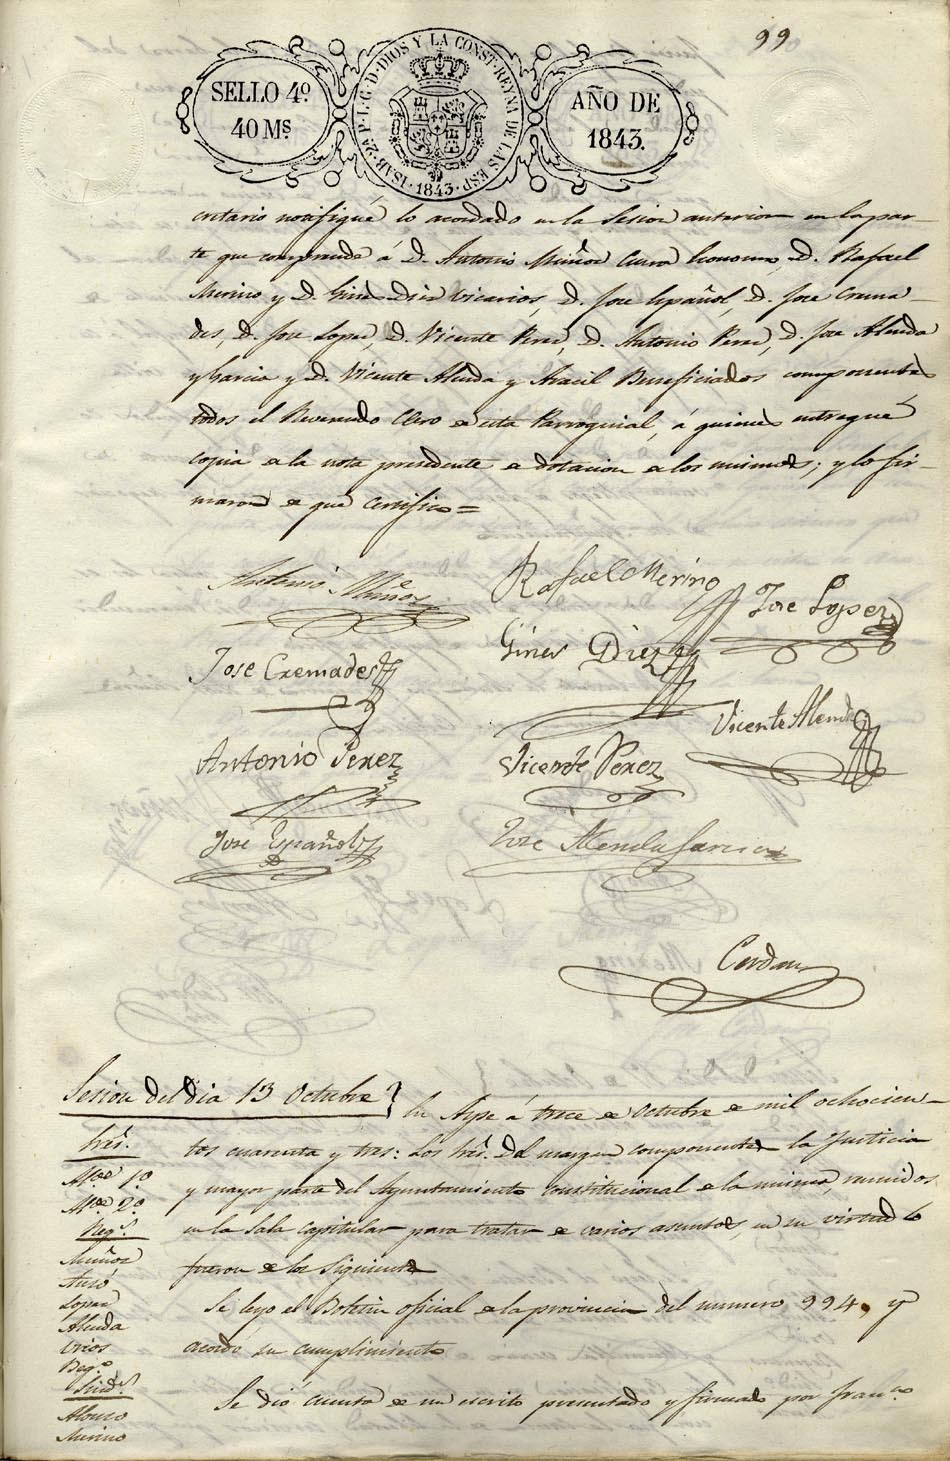 99
SELLO 4º
40 Ms.
ISAB. 2A P. L. G. D. DIOS Y LA CONST. REYNA DE LAS ESP.
1843
AÑO DE
1843.
cretario notifiqué lo acordado en la Sesion anterior en la par-
te que comprende á D. Antonio Muñoz Cura Economo, D. Rafael
Merino y D. Gines Diez Vicarios, D. Jose Español, D. Jose Crema-
des, D. Jose Lopez, D. Vicente Perez, D. Antonio Perez, D. Jose Almela
y Garcia y D. Vicente Almela y Aracil Beneficiados componentes
todos el Reverendo Clero de esta Parroquial, á quienes entregué
copia de la nota precedente de dotacion de los mismos; y lo fir-
maron de que Certifico =
Antonio Muñoz
Rafael Merino
Jose Lopez
Gines Diez
Jose Cremades
Vicente Almela
Antonio Perez
Vicente Perez
Jose Español
Jose Almela Garcia
Cerdan
Sesion del dia 13 Octubre
En Aspe á trece de Octubre de mil ochocien-
tos cuarenta y tres: Los Sres. del margen componentes la Justicia
y mayor parte del Ayuntamiento constitucional de la misma, reunidos
en la Sala Capitular para tratar de varios asuntos, en su virtud lo
fueron de los Siguientes
Se leyo el Boletin oficial de la provincia del numero 994, y
acordó su cumplimiento
Se dio cuenta de un escrito presentado y firmado por Franco
Sres.
Alce 1º
Alce 2º
Regs.
Muñoz
Lopez
Almela
Sinds.
Alonso
Merino